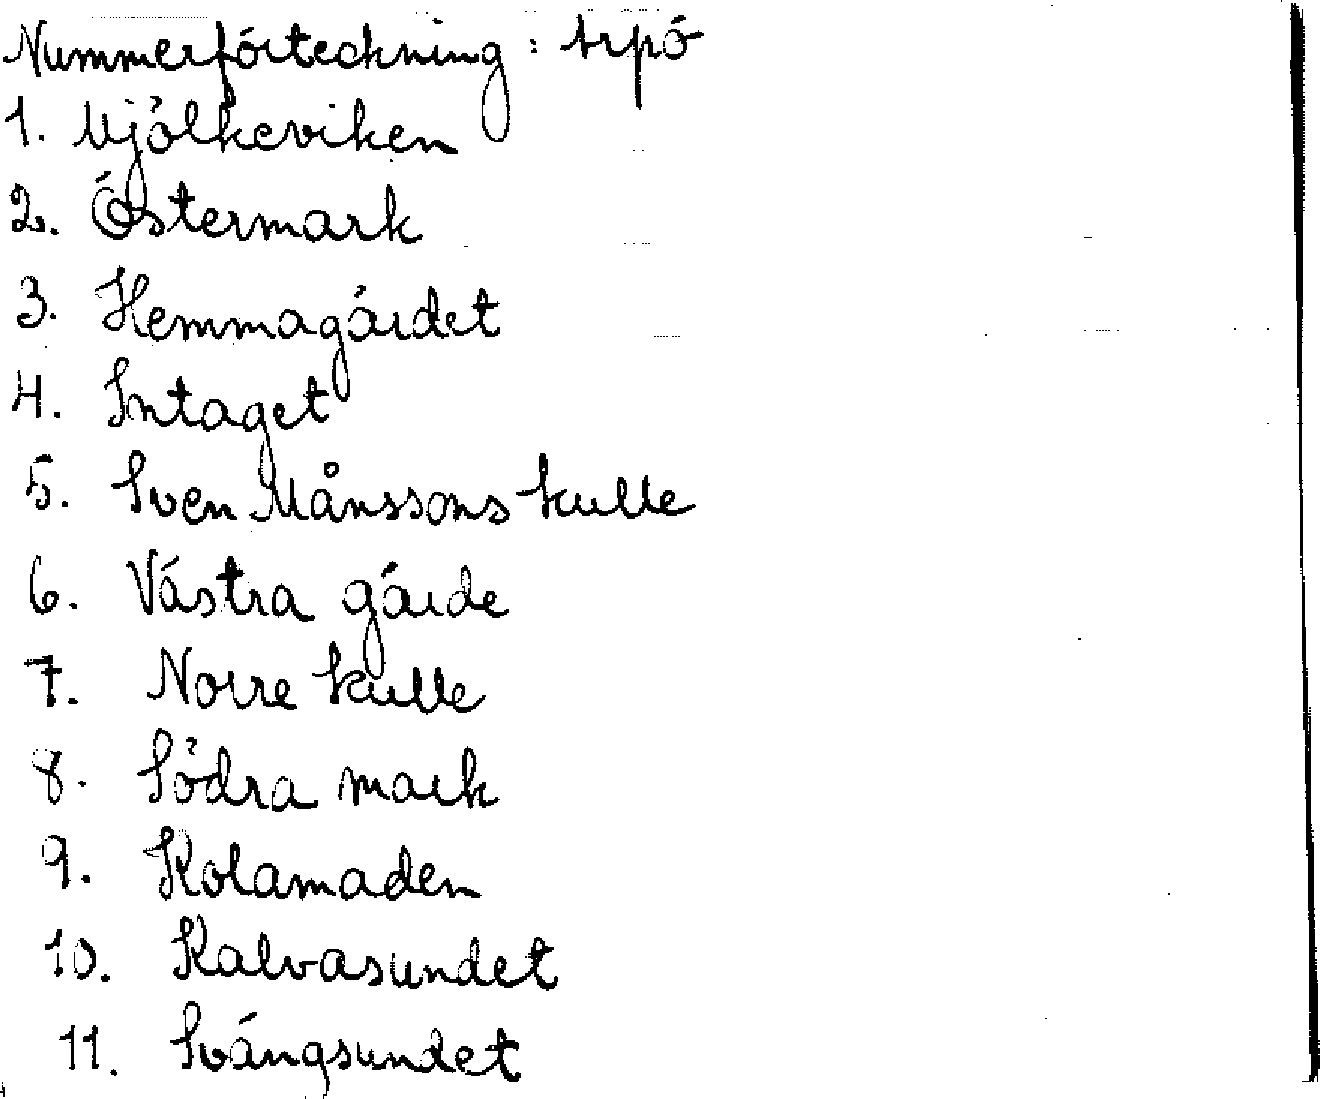 Nummerförteckning:
1. Mjölkeviken
2. Östermark
3. Hemmagärdet
4. Intaget
5. Sven Månssons kulle
6. Västra gärde
7. Norre kulle
8. Södra mark
9. Kolamaden
10. Kalvasundet
11. Svängsundet